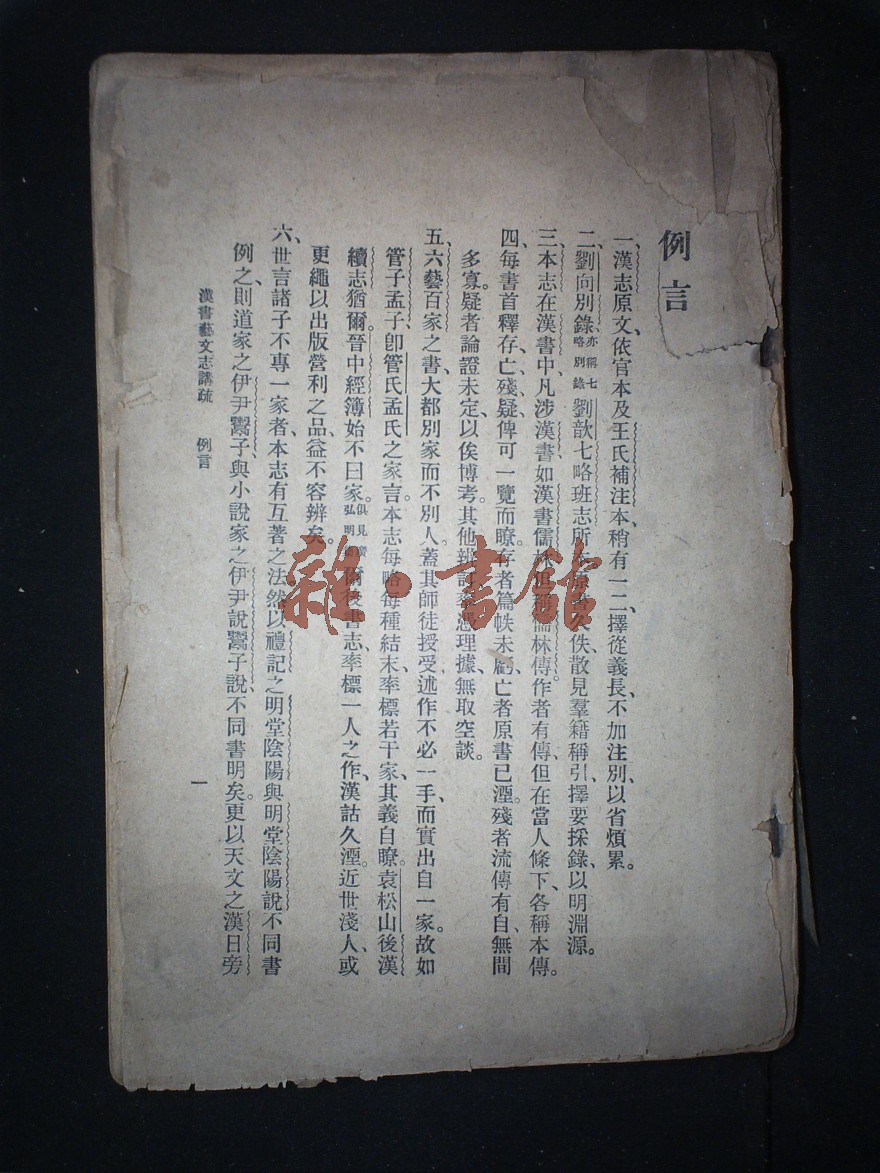 例言
一、漢志原文、依官本及王氏補注本、稍有一二擇從義長、不加注別、以省煩累。
二、劉向別錄、亦稱七略別錄劉歆七略、班志所 久佚、散見羣籍稱引、擇要採錄、以明淵源。
三、本志在漢書中、凡涉漢書、如漢書儒林 儒林傳。作者有傳、但在當人條下、各稱本傳。
四、每書首釋存、亡、殘、疑、俾可一覽而瞭。存者篇帙未虧、亡者原書已湮。殘者流傳有自、無間
多寡。疑者論證未定、以俟博考。其他辨訂 憑理據、無取空談。
五、六藝百家之書、大都別家而不別人。蓋其師徒授受、述作不必一手、而實出自一家。故如
管子孟子、卽管氏孟氏之家言。本志每略每種結末、率標若干家、其義自瞭。袁松山後漢
續志猶爾。晉中經簿始不曰家。俱見廣弘明 爾後書志、率標一人之作、漢詁久湮。近世淺人、或
更繩以出版營利之品、益不容辨矣。
六、世言諸子不專一家者、本志有互著之法、然以禮記之明堂陰陽與明堂陰陽說不同書
例之、則道家之伊尹鬻子、與小說家之伊尹說鬻子說、不同書明矣。更以天文之漢日旁
漢書藝文志講疏 例言
一
雜·書館